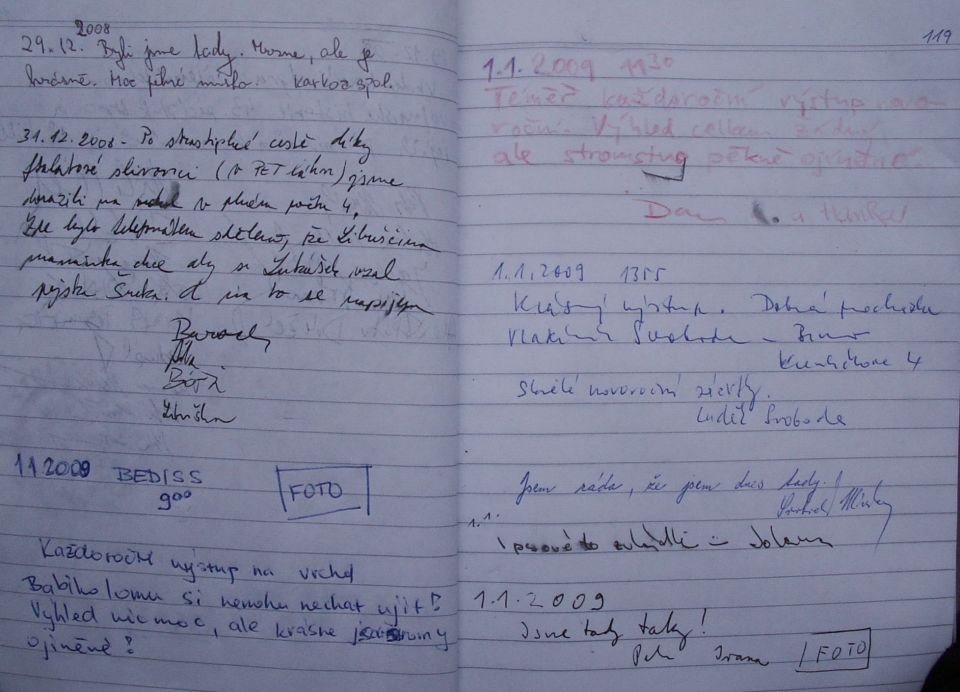 2008
29.12. Byli jsme tady. Mrazne, ale je
krásně. Moc pěkné místo. karkoz spol.
31.12.2008 - Po strastiplné cestě díky
slivovici (v PET láhvi) jsme
dorazili na v plném počtu 4.
Zde bylo že Libuščina
maminka chce aby si Lukášek vzal
pejska Šneka. A na to se napijem
Bára
Libuška
1.1.2009 BEDISS
9⁰⁰
FOTO
Každoroční výstup na vrchol
Babího lomu si nemohu nechat ujít!
Výhled nic moc, ale krásně stromy
ojíněné!
119
1.1.2009 11³⁰
Téměř každoroční výstup novo
roční. Výhled celkem žádný
ale stromstva pěkně
Dan a Hanka!
1.1.2009 13⁵⁵
Krásný výstup. Dobrá procházka
Vladimír Svoboda - Brno
4
Skvělé novoroční zážitky.
Luděk Svoboda
Jsem ráda, že jsem dnes tady.
1.1.
I psové to zvládli -
1.1.2009
Jsme tady taky!
Petr Ivana FOTO